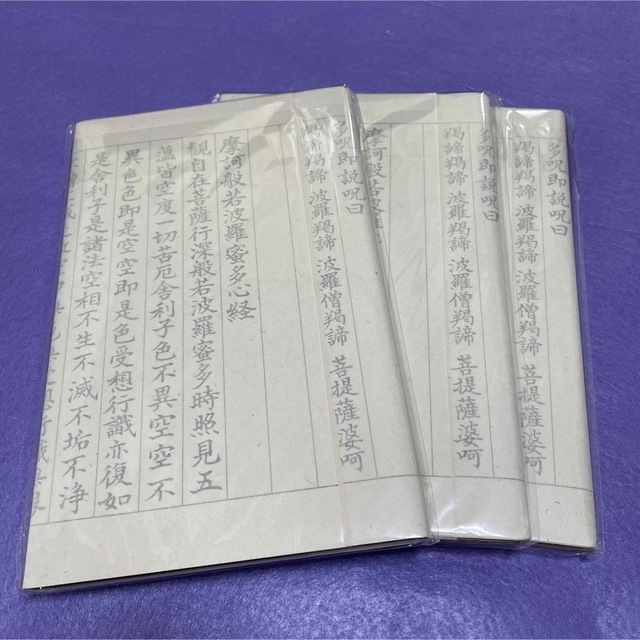 多呪即説呪曰
羯諦羯諦 波羅羯諦 波羅僧羯諦 菩提薩婆呵
多呪即説呪曰
羯諦羯諦 波羅羯諦 波羅僧羯諦 菩提薩婆呵
摩訶般若波
多呪即説呪曰
羯諦羯諦 波羅羯諦 波羅僧羯諦 菩提薩婆呵
摩訶般若波羅蜜多心経
観自在菩薩行深般若波羅蜜多時照見五
蘊皆空度一切苦厄舎利子色不異空空不
異色色即是空空即是色受想行識亦復如
是舎利子是諸法空相不生不滅不垢不浄